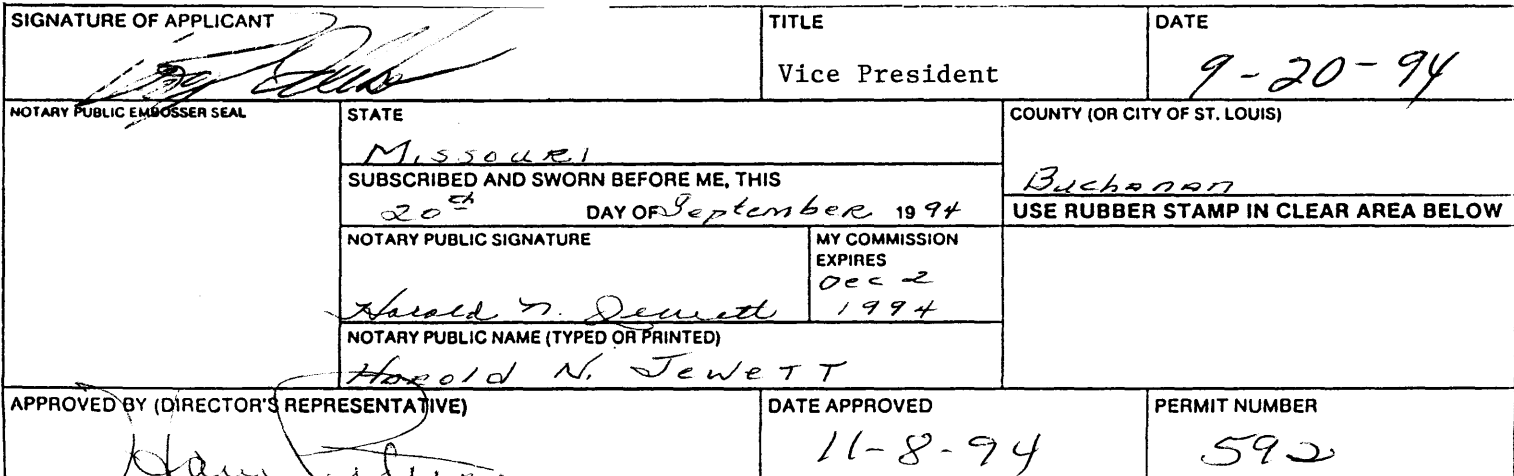 SIGNATURE OF APPLICANT
TITLE
DATE
Vice President
9-20-94
NOTARY PUBLIC EMBOSSER SEAL
STATE
COUNTY (OR CITY OF ST. LOUIS)
Missouri
Buchanan
SUBSCRIBED AND SWORN BEFORE ME, THIS
20th DAY OF September 1994
USE RUBBER STAMP IN CLEAR AREA BELOW
NOTARY PUBLIC SIGNATURE
MY COMMISSION
EXPIRES
Dec 2
1994
Harold N. Jewett
NOTARY PUBLIC NAME (TYPED OR PRINTED)
Harold N. Jewett
APPROVED BY (DIRECTOR'S REPRESENTATIVE)
DATE APPROVED
PERMIT NUMBER
11-8-94
592